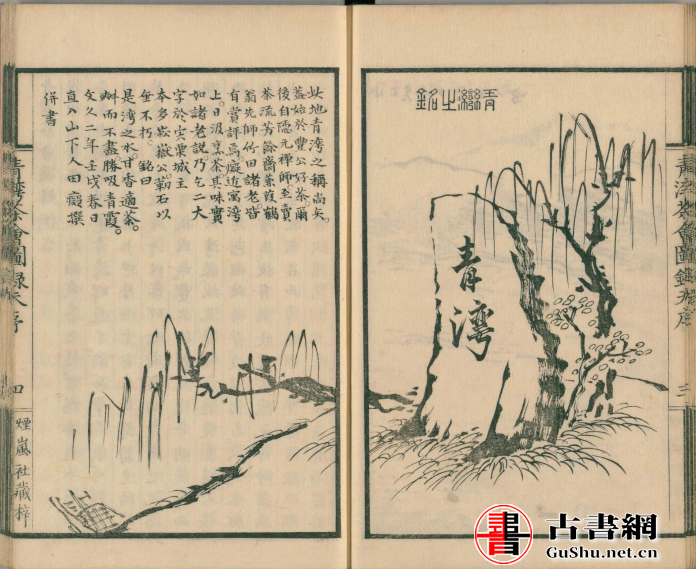 青灣之銘
青灣
三
此地青湾之稱尚矣。
蓋始於豐公好茶爾
後自隱元禅師至賣
茶流芳餘齋葉葭鶴
翁先師竹田諸老。皆
有嘗評焉癡近寓湾
上。日汲烹茶其味實
如諸老説乃乞二大
字於宍粟城主
本多嶽公勒石以
垂不朽。銘曰
是湾之水。甘香適茶。
斟而不盡勝吸青霞。
文久二年壬戌春日
直入山下人田癡撰
併書
青湾茶會圖録
序
四
煙嵐社藏梓
書
古書網
GuShu.net.cn